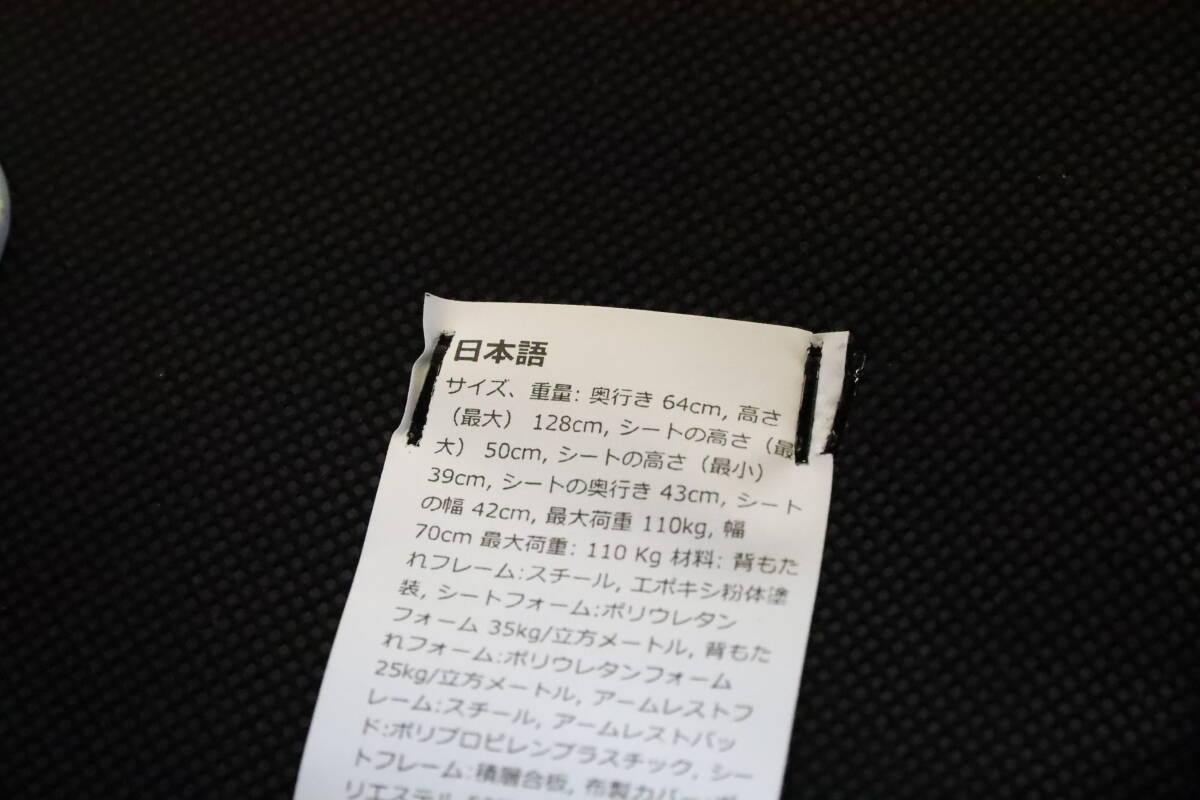 日本語
サイズ、重量: 奥行き 64cm, 高さ
（最大） 128cm, シートの高さ（最
大） 50cm, シートの高さ（最小）
39cm, シートの奥行き 43cm, シート
の幅 42cm, 最大荷重 110kg, 幅
70cm 最大荷重: 110 Kg 材料: 背もた
れフレーム:スチール, エポキシ粉体塗
装, シートフォーム:ポリウレタン
フォーム 35kg/立方メートル, 背もた
れフォーム:ポリウレタンフォーム
25kg/立方メートル, アームレストフ
レーム:スチール, アームレストパッ
ド:ポリプロピレンプラスチック, シー
トフレーム:積層合板, 布製カバー:ポ
リエステル